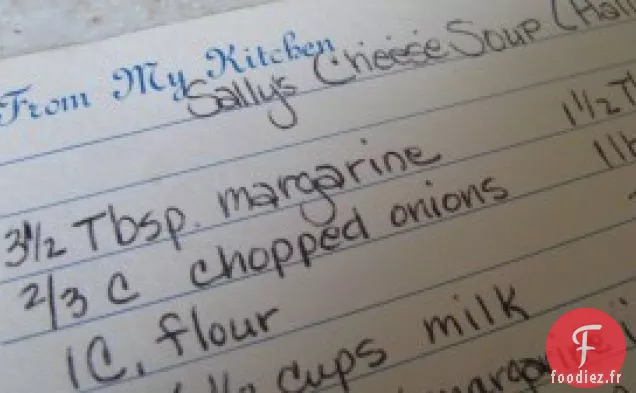 From My Kitchen
Sally's Cheese Soup (Hal
3 1/2 Tbsp. margarine 1 1/2 Tb
2/3 C chopped onions 1 lb
1 C. flour
1/2 cups milk
margarine
F
foodiez.fr